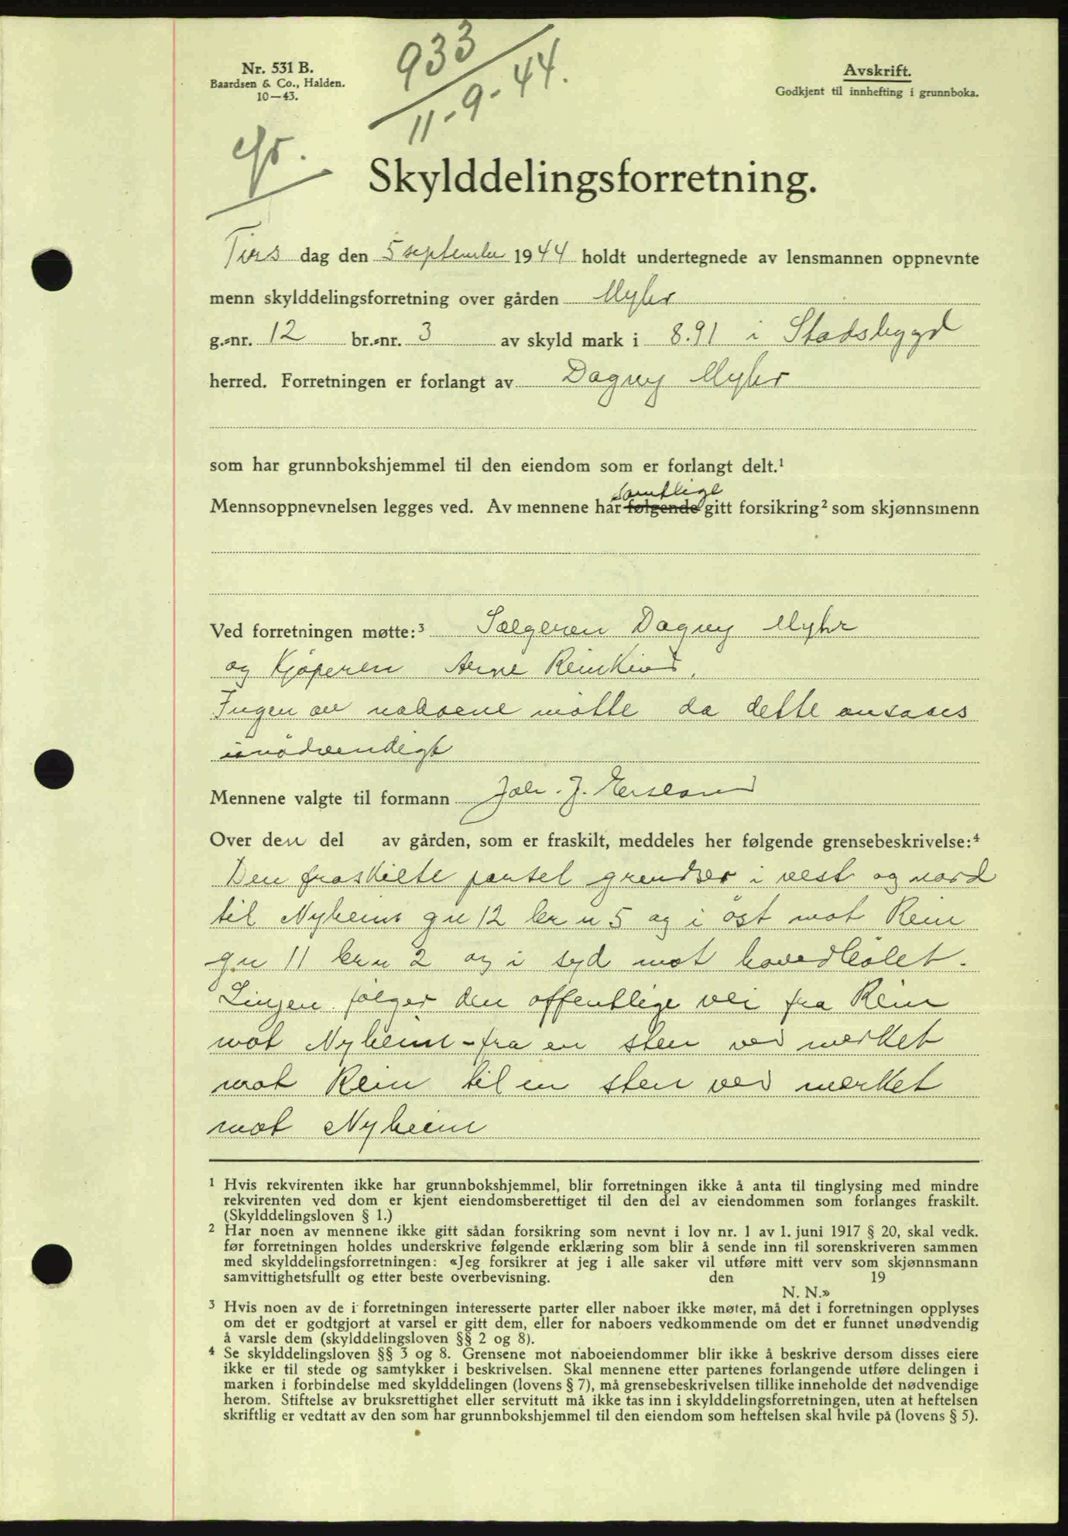 Nr. 531 B.
Baardsen & Co., Halden.
10—43.
933
11-9-44.
Avskrift.
Godkjent til innhefting i grunnboka.
Skylddelingsforretning.
Tirs dag den 5 september 1944 holdt undertegnede av lensmannen oppnevnte
menn skylddelingsforretning over gården Myhr
g.-nr. 12 br.-nr. 3 av skyld mark i 8.91 i Stadsbygd
herred. Forretningen er forlangt av Dagny Myhr
som har grunnbokshjemmel til den eiendom som er forlangt delt.¹
samtlige
Mennsoppnevnelsen legges ved. Av mennene har følgende gitt forsikring² som skjønnsmenn
Ved forretningen møtte:³ Sælgeren Dagny Myhr
og Kjøperen Arne Reinkind.
Ingen av naboene møtte da dette ansaaes
unødvendigt
Mennene valgte til formann Joh. J. Ersland
Over den del av gården, som er fraskilt, meddeles her følgende grensebeskrivelse:⁴
Den fraskilte parsel grenser i vest og nord
til Nyheim gn 12 br n 5 og i øst mot Rein
gn 11 br n 2 og i syd mot hovedbølet.
Linjen følger den offentlige vei fra Rein
mot Nyheim - fra en sten ved merket
mot Rein til en sten ved merket
mot Nyheim
¹ Hvis rekvirenten ikke har grunnbokshjemmel, blir forretningen ikke å anta til tinglysing med mindre
rekvirenten ved dom er kjent eiendomsberettiget til den del av eiendommen som forlanges fraskilt.
(Skylddelingsloven § 1.)
² Har noen av mennene ikke gitt sådan forsikring som nevnt i lov nr. 1 av 1. juni 1917 § 20, skal vedk.
før forretningen holdes underskrive følgende erklæring som blir å sende inn til sorenskriveren sammen
med skylddelingsforretningen: «Jeg forsikrer at jeg i alle saker vil utføre mitt verv som skjønnsmann
samvittighetsfullt og etter beste overbevisning. den 19
N. N.»
³ Hvis noen av de i forretningen interesserte parter eller naboer ikke møter, må det i forretningen opplyses
om det er godtgjort at varsel er gitt dem, eller for naboers vedkommende om det er funnet unødvendig
å varsle dem (skylddelingsloven §§ 2 og 8).
⁴ Se skylddelingsloven §§ 3 og 8. Grensene mot naboeiendommer blir ikke å beskrive dersom disses eiere
ikke er til stede og samtykker i beskrivelsen. Skal mennene etter partenes forlangende utføre delingen i
marken i forbindelse med skylddelingen (lovens § 7), må grensebeskrivelsen tillike inneholde det nødvendige
herom. Stiftelse av bruksrettighet eller servitutt må ikke tas inn i skylddelingsforretningen, uten at heftelsen
skriftlig er vedtatt av den som har grunnbokshjemmel til den eiendom som heftelsen skal hvile på (lovens § 5).